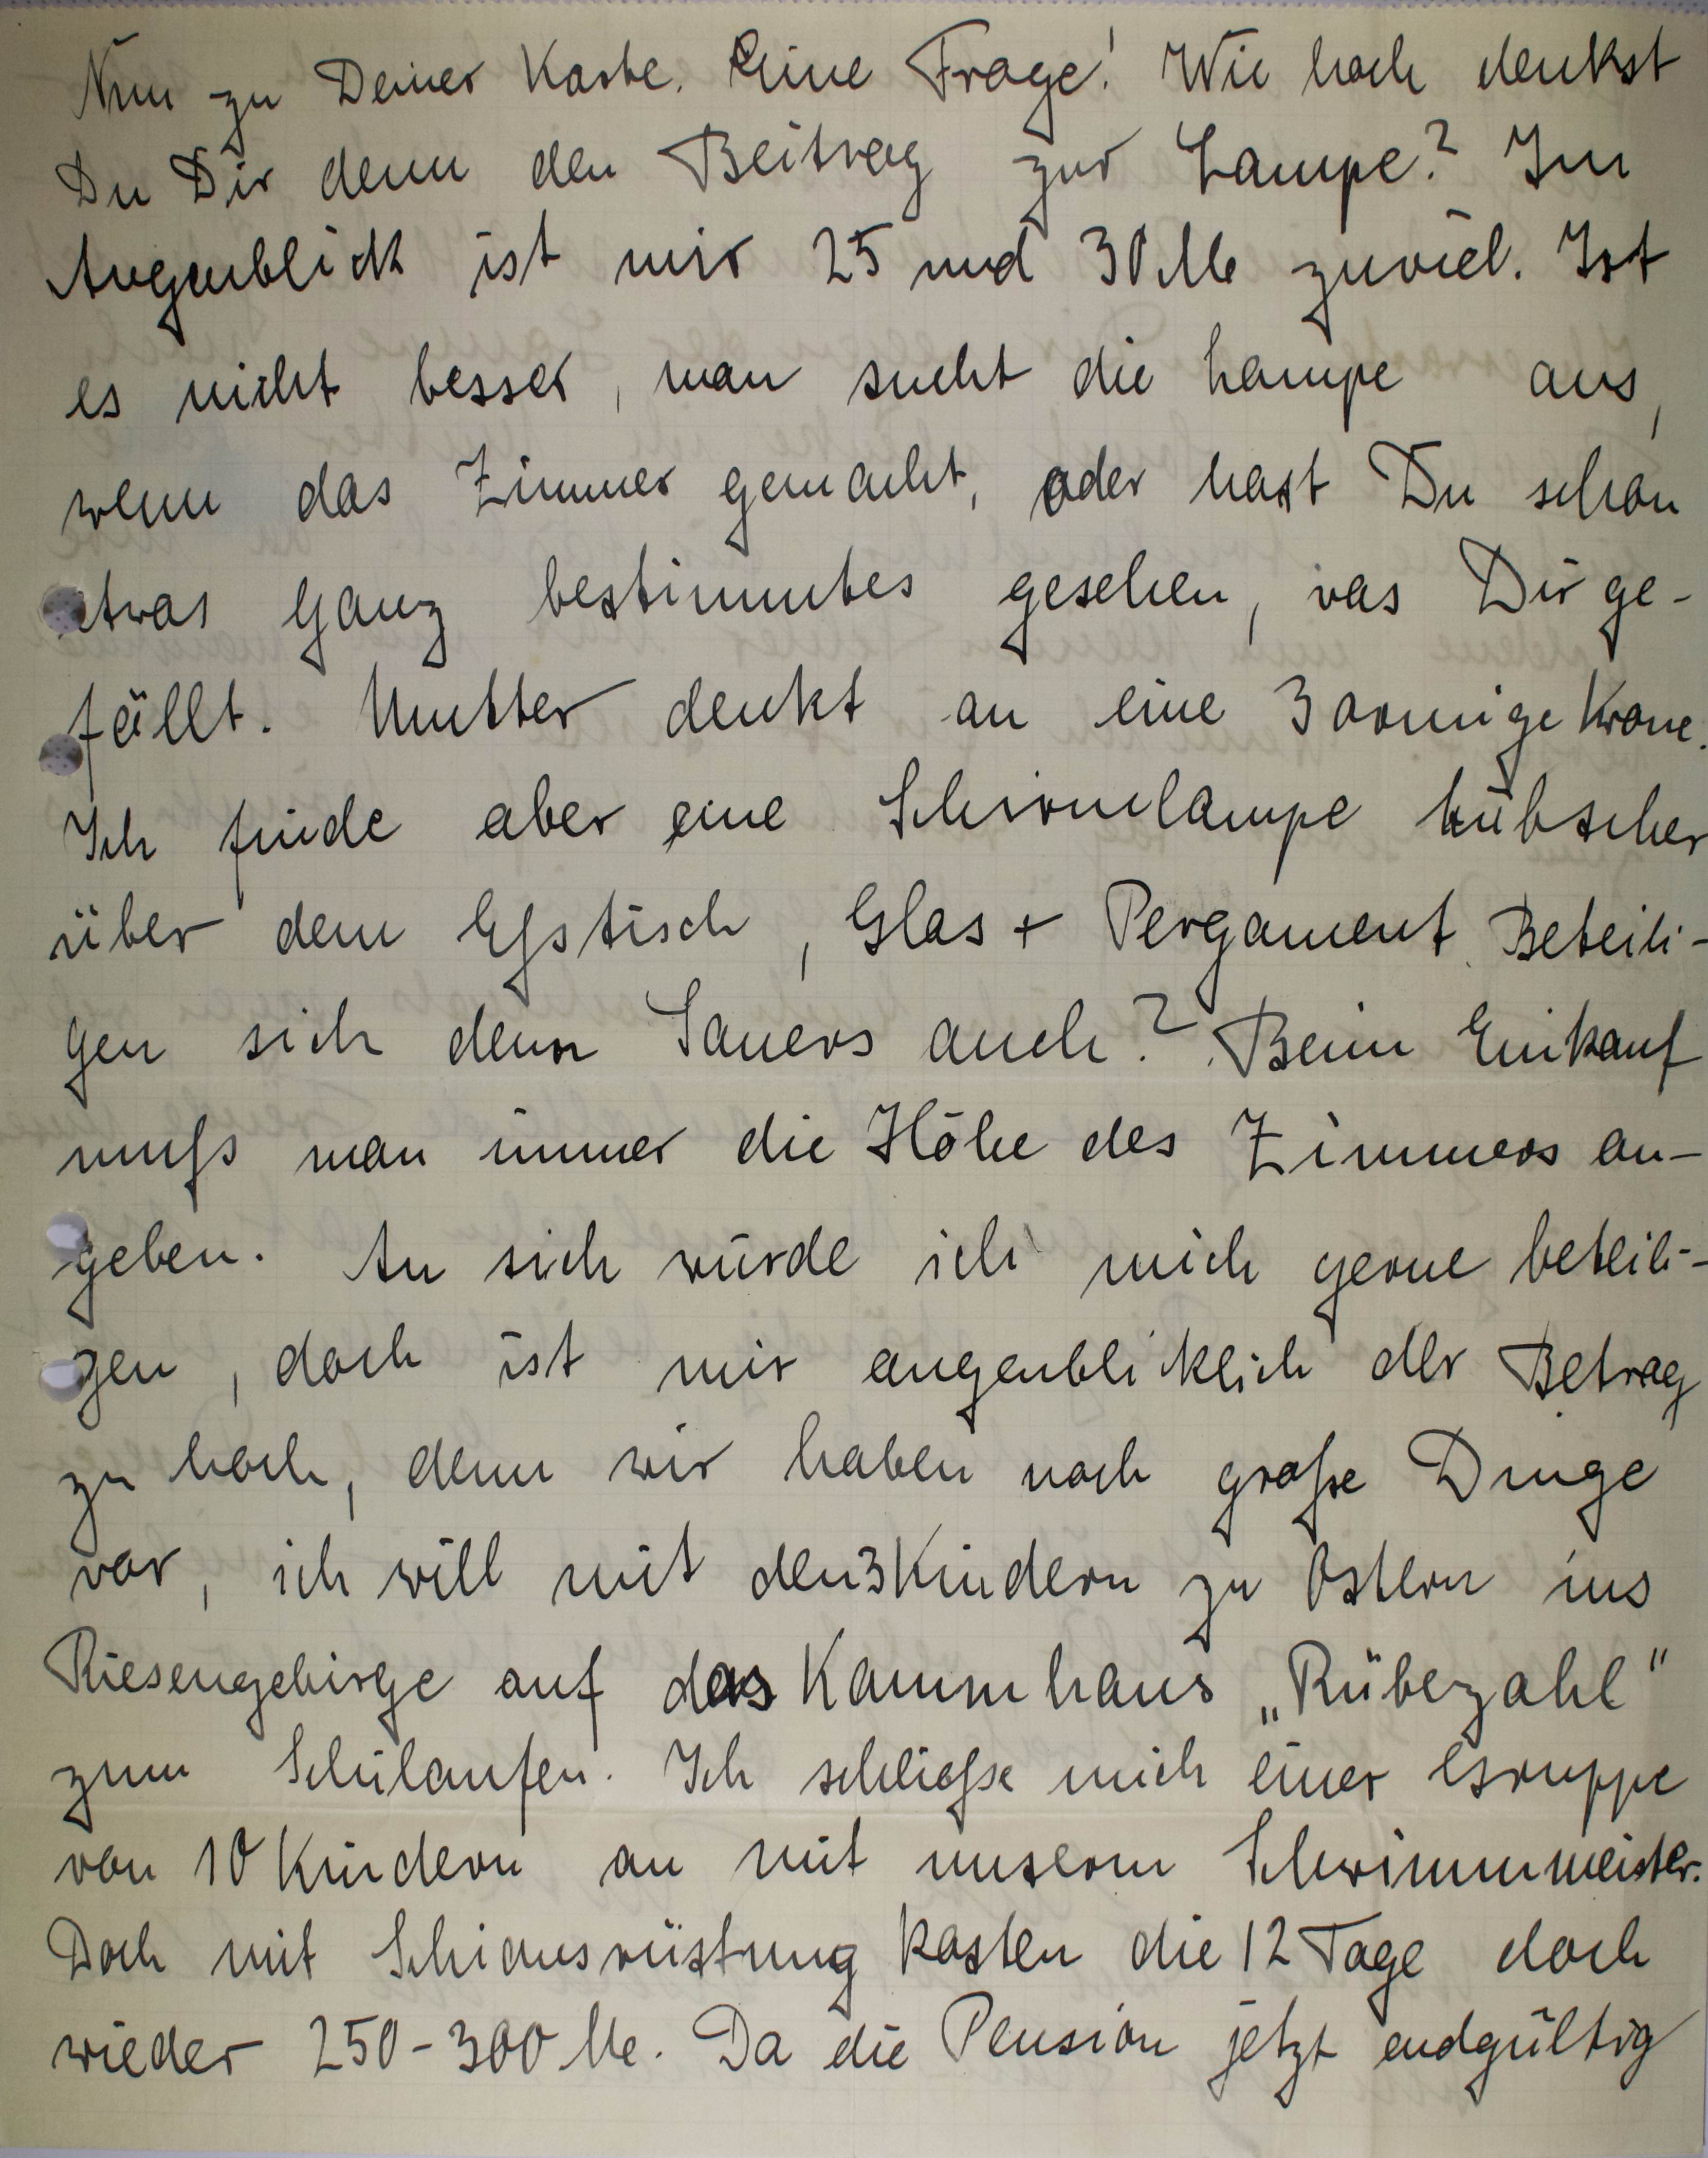 Nun zu Deiner Karte. Eine Frage! Wie hoch denkst
Du Dir denn den Beitrag zur Lampe? Im
Augenblick ist mir 25 und 30 M zuviel. Ist
es nicht besser, man sucht die Lampe aus,
wenn das Zimmer gemacht, oder hast Du schon
etwas ganz bestimmtes gesehen, was Dir ge-
fällt. Mutter denkt an eine 3 armige Krone.
Ich finde aber eine Schirmlampe hübscher
über dem Eßstisch, Glas + Pergament. Beteili-
gen sich denn Sauers auch? Beim Einkauf
muß man immer die Höhe des Zimmers an-
geben. An sich würde ich mich gerne beteili-
gen, doch ist mir augenblicklich der Betrag
zu hoch, denn wir haben noch große Dinge
vor, ich will mit den 3 Kindern zu Ostern ins
Riesengebirge auf das Kammhaus „Rübezahl"
zum Schilaufen. Ich schließe mich einer Gruppe
von 10 Kindern an mit unserm Schwimmmeister.
Doch mit Schiausrüstung kosten die 12 Tage doch
wieder 250-300 M. Da die Pension jetzt endgültig